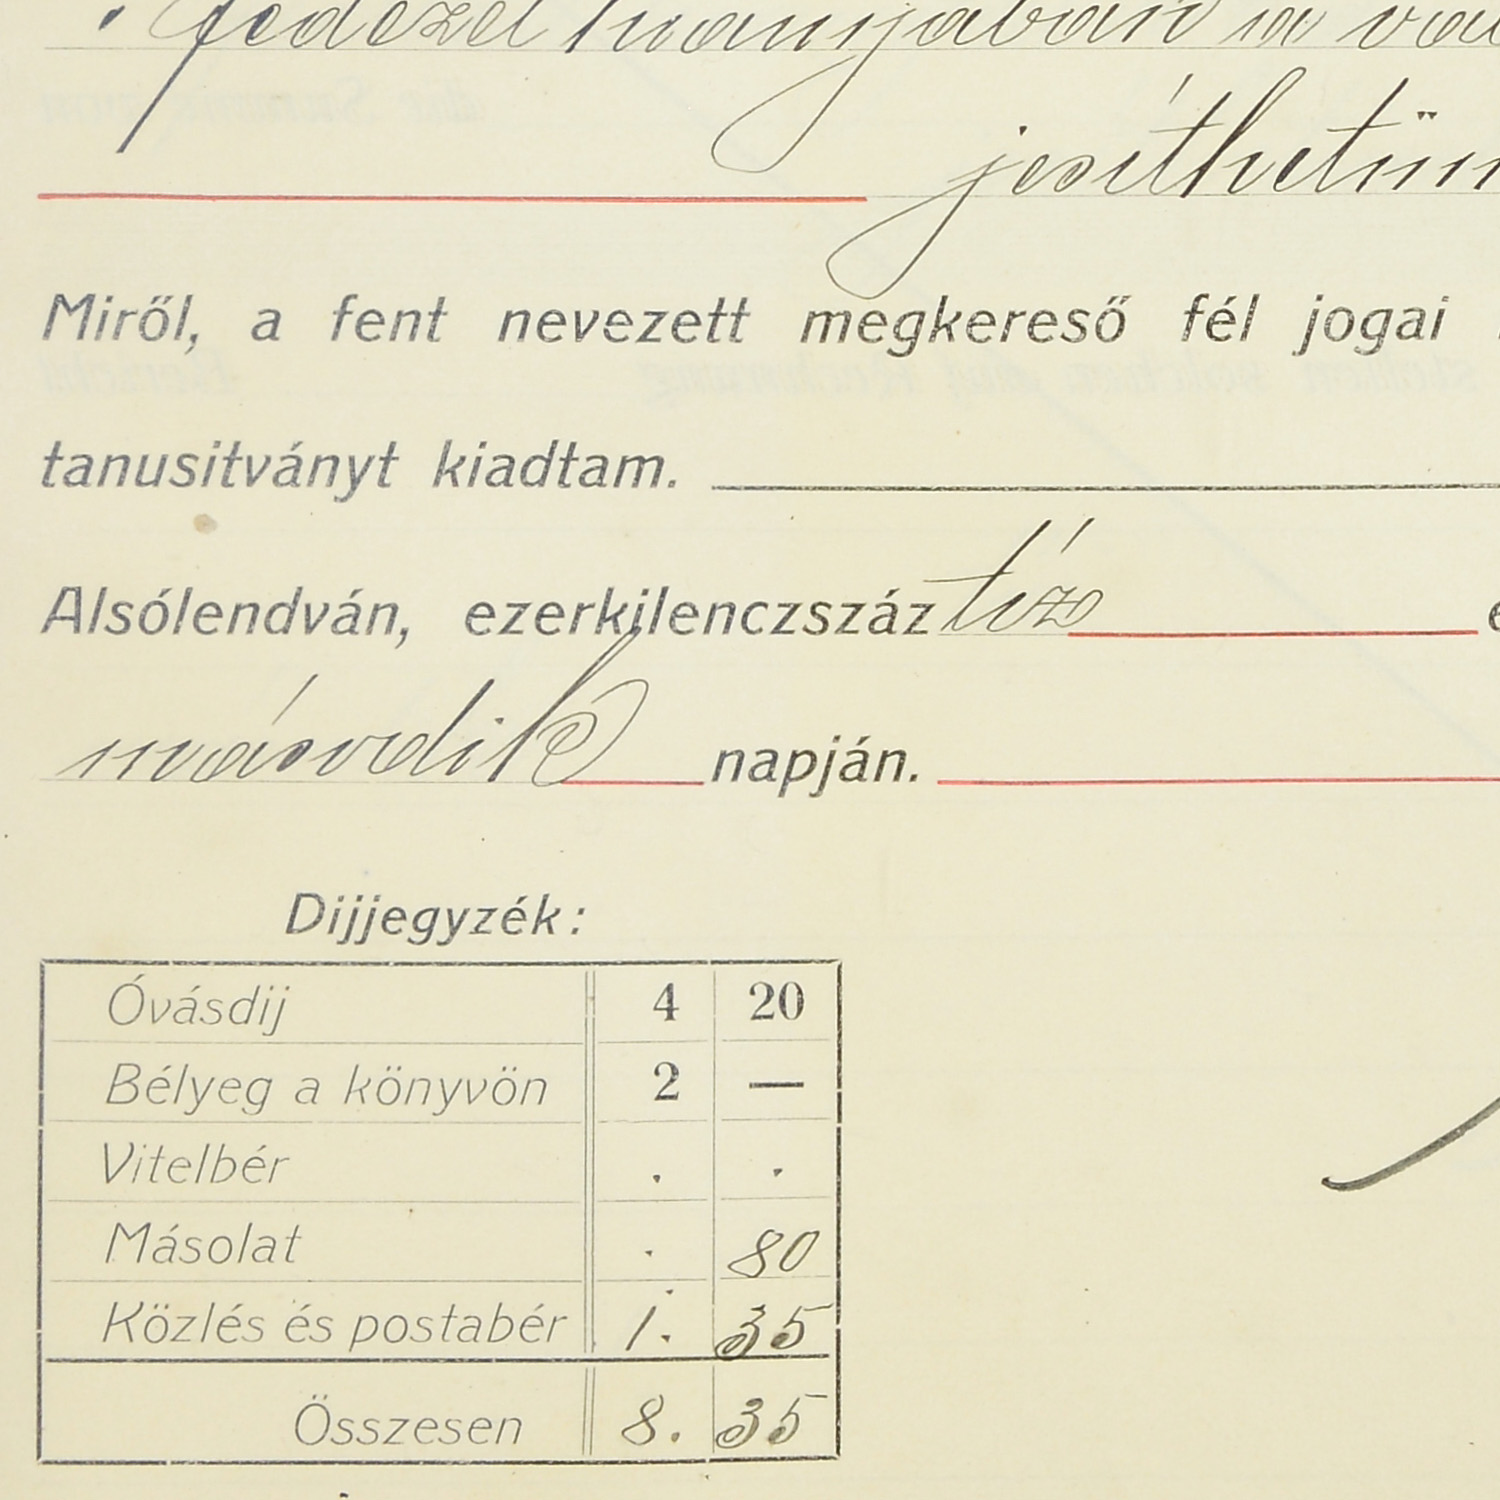 fedezet hiányában a
jesíthetjük
Miről, a fent nevezett megkereső fél jogai
tanusitványt kiadtam.
Alsólendván, ezerkilenczszáz tíz
második napján.
Dijjegyzék:
Óvásdij 4 20
Bélyeg a könyvön 2 —
Vitelbér . .
Másolat . 80
Közlés és postabér 1. 35
Összesen 8. 35